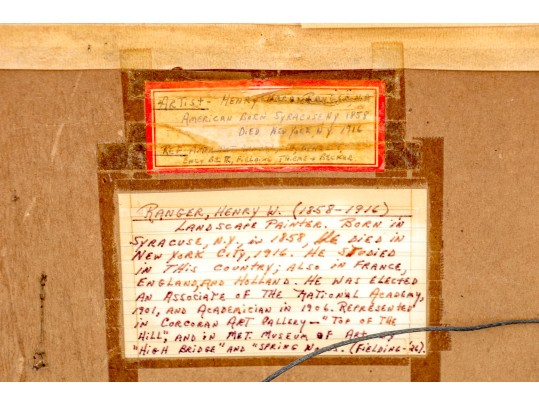 ARTIST - HENRY
AMERICAN BORN SYRACUSE NY 1858
DIED NEW YORK, N.Y. 1916
REF.
FIELDING,
RANGER, HENRY W. (1858-1916)
LANDSCAPE PAINTER. BORN IN
SYRACUSE, N.Y., IN 1858, HE DIED IN
NEW YORK CITY, 1916. HE STUDIED
IN THIS COUNTRY; ALSO IN FRANCE,
ENGLAND, AND HOLLAND. HE WAS ELECTED
AN ASSOCIATE OF THE NATIONAL ACADEMY,
1901, AND ACADEMICIAN IN 1906. REPRESENTED
IN CORCORAN ART GALLERY - "TOP OF THE
HILL", AND IN MET. MUSEUM OF ART
"HIGH BRIDGE" AND "SPRING (FIELDING-'26).